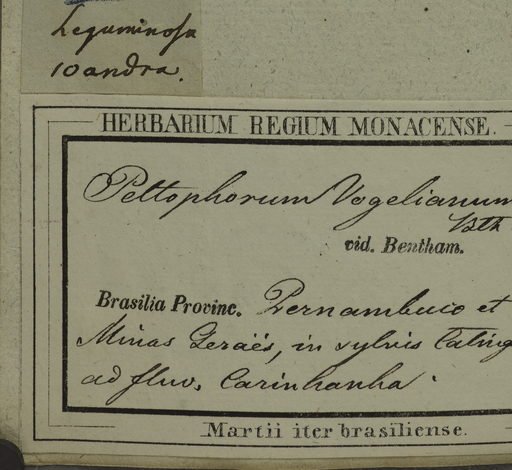 Leguminosa
10andra.
HERBARIUM REGIUM MONACENSE.
Peltophorum Vogelianum
Bth
vid. Bentham.
Brasilia Provinc. Pernambuco et
Minas Geraës, in sylvis Cating
ad fluv. Carinhanha.
Martii iter brasiliense.